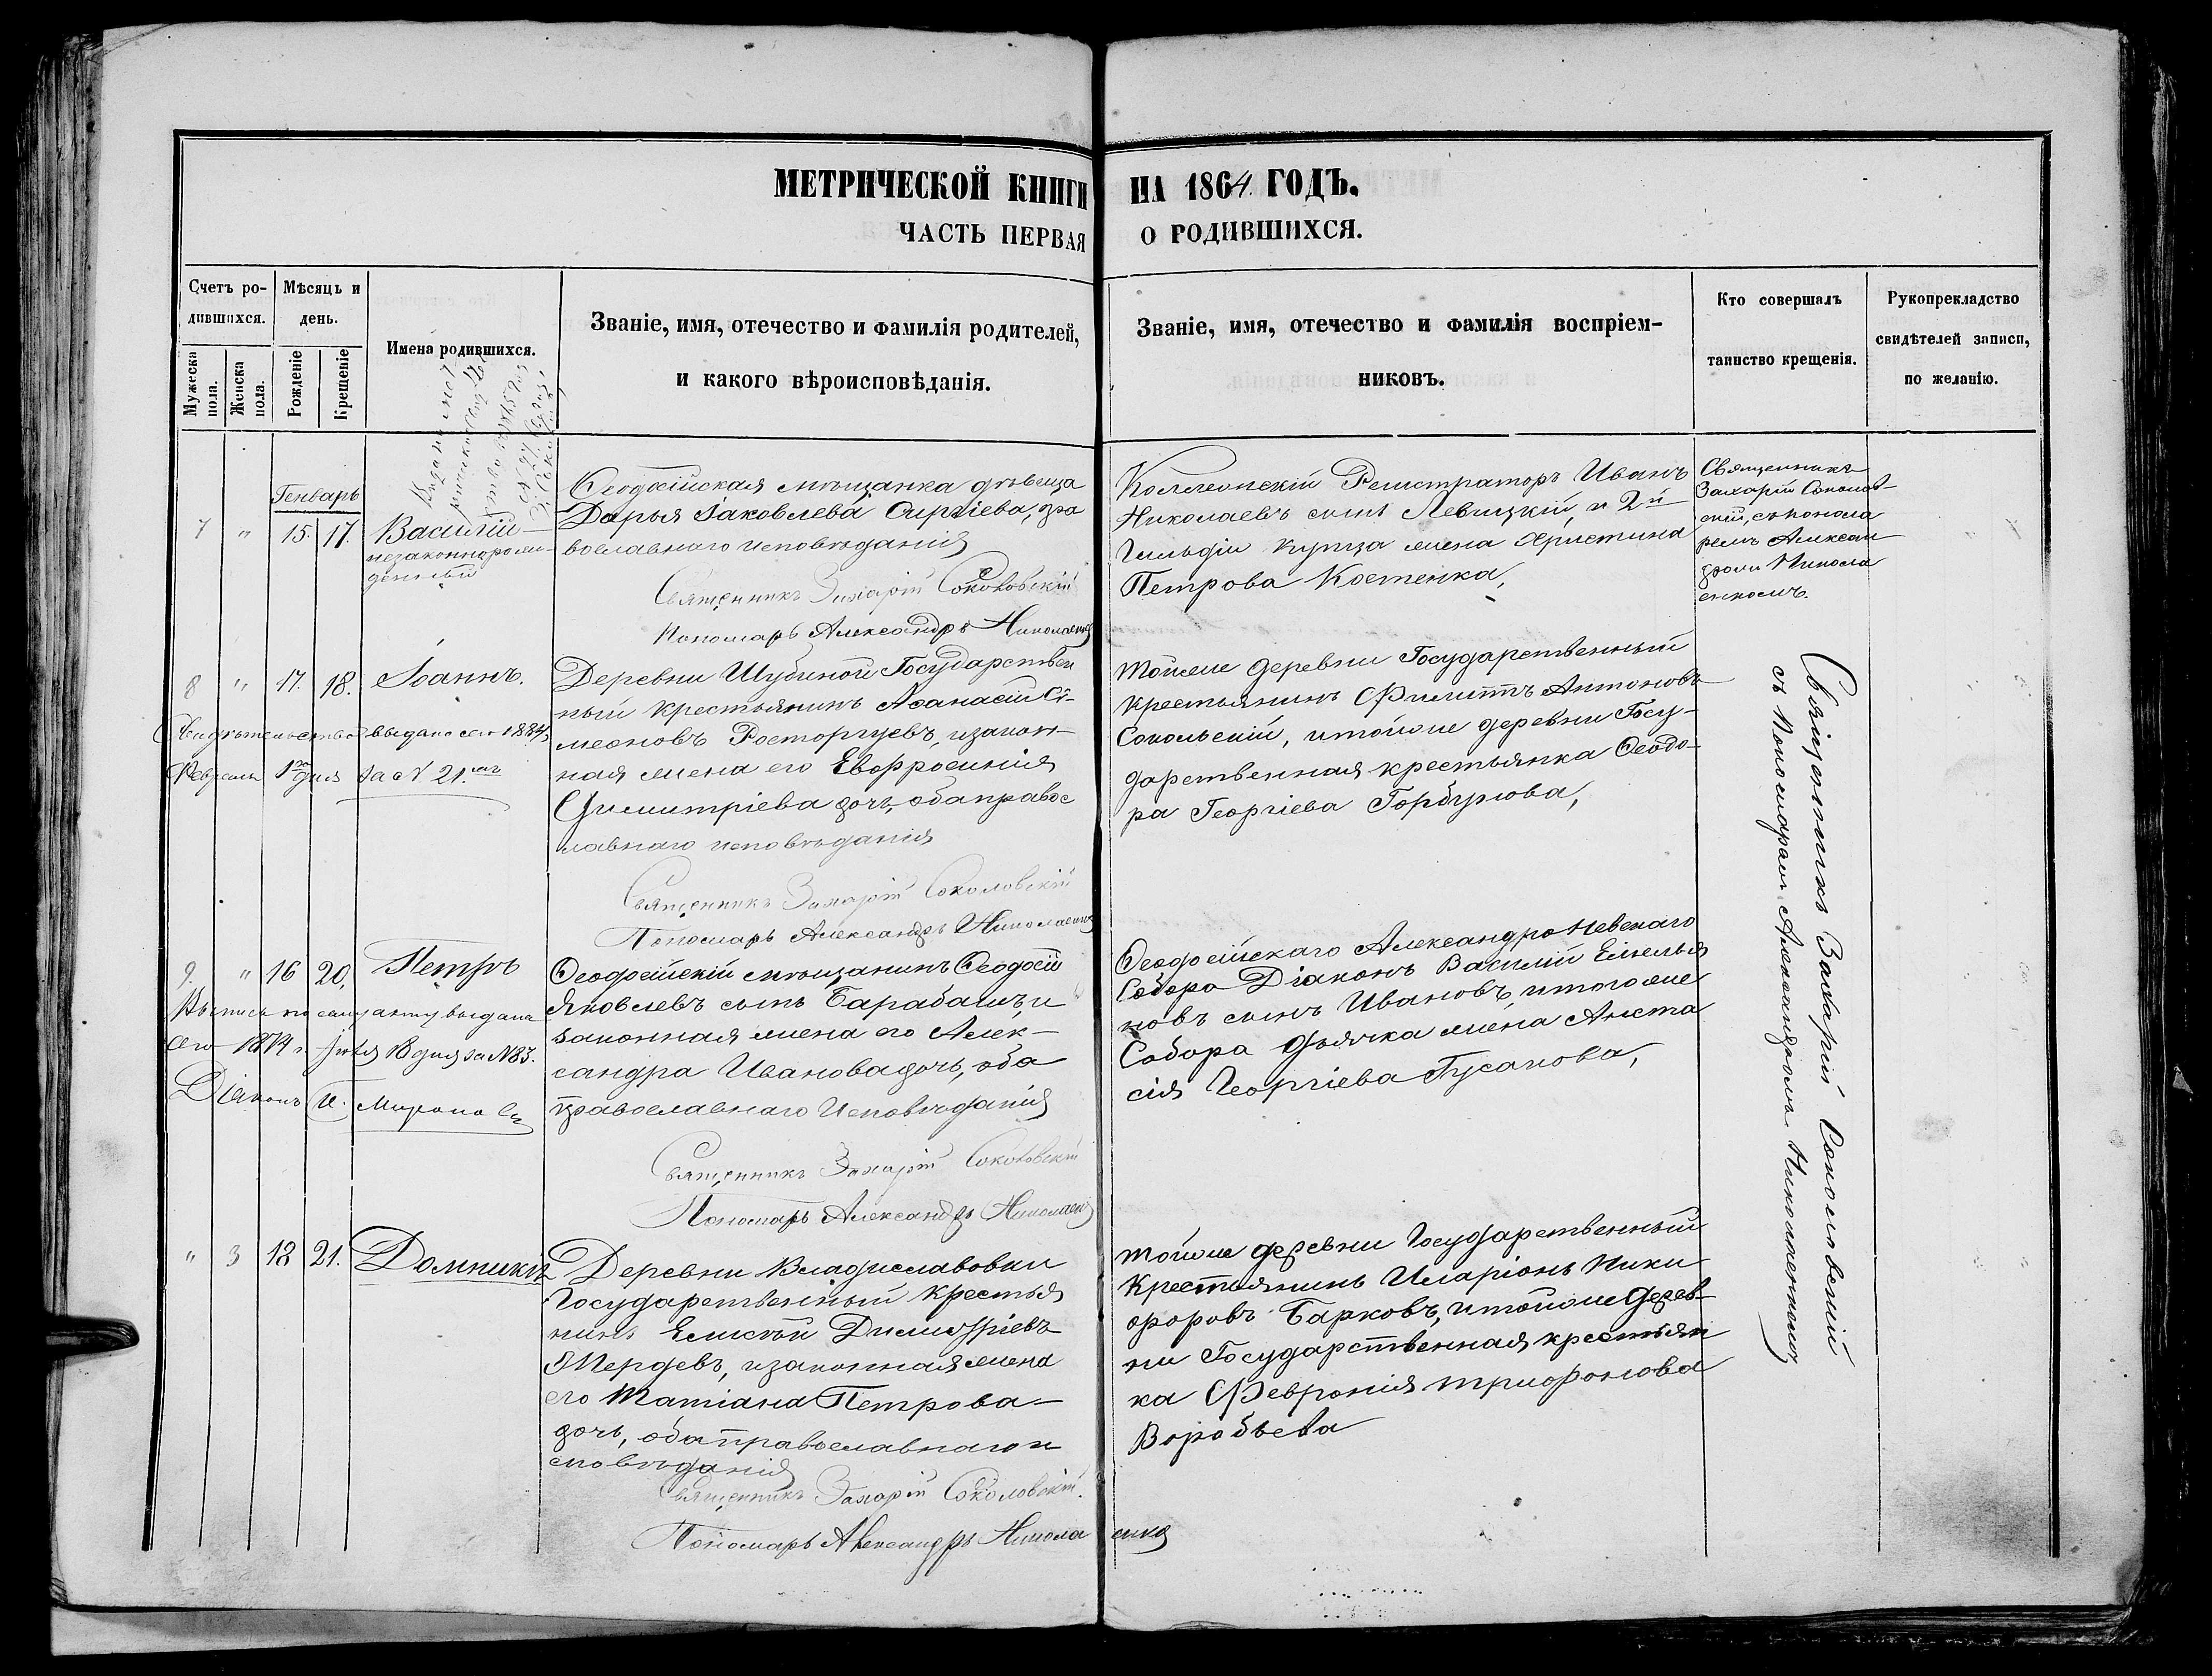 МЕТРИЧЕСКОЙ КНИГИ НА 1864. ГОДЪ.
ЧАСТЬ ПЕРВАЯ О РОДИВШИХСЯ.
Счетъ ро-
дившихся.
Мужеска
пола.
Женска
пола.
Мѣсяцъ и
день.
Рожденіе
Крещеніе
Имена родившихся.
Званіе, имя, отечество и фамилія родителей,
и какого вѣроисповѣданія.
Званіе, имя, отечество и фамилія воспріем-
никовъ.
Кто совершалъ
таинство крещенія.
Рукоприкладство
свидѣтелей записи,
по желанію.
Генварь
7 " 15. 17. Василій
незаконнорож-
денный
Ѳеодосійская мѣщанка дѣвица
Дарья Іаковлева Сиргіева, пра
вославнаго исповѣданія
Священникъ Захарій Соколовскій
Пономарь Александръ Николаенко
Коллежскій Регистраторъ Иванъ
Николаевъ сынъ Левицкій, и 2й
Гильдіи купца жена Христина
Петрова Костенка,
Священникъ
Захарій Соколов-
скій, съ понома
ремъ Алексан
дромъ Никола
енкомъ.
8 " 17. 18. Іоаннъ.
Свидѣтельство выдано сего 1884
Февраля 1го дня за № 21.
Деревни Шубиной Государствен
ный крестьянинъ Аѳанасій Сі-
меоновъ Росторгуевъ, изакон-
ная жена его Евфросинія
Димитріева дочь, оба правос
лавнаго исповѣданія
Священникъ Захарій Соколовскій
Пономарь Александръ Николаенко
тойже деревни Государственный
крестьянинъ Филиппъ Антоновъ
Сокольскій, итойже деревни Госу-
дарственная крестьянка Ѳеодо-
ра Георгіева Горбунова,
9. " 16 20, Петръ
Выпись по сему акту выдана
сего 1874 г. Іюля 18 дня за № 83.
Діаконъ
Ѳеодосійскій мѣщанинъ Ѳеодосій
Яковлевъ сынъ Барабашъ, и
законная жена его Алек-
сандра Иванова дочь, оба
православнаго Исповѣданія
Священникъ Захарій Соколовскій
Пономарь Александръ Николаенко
Ѳеодосійскаго Александро Невскаго
Собора Діаконъ Василій Емелья
новъ сынъ Ивановъ, итогоже
Собора дьячка жена Анста
сія Георгіева Гусакова,
" 3 18 21. Домникія
Деревни Владиславовки
Государственный Крестья
нинъ Елисѣй Димитріевъ
Мердевъ, изаконная жена
его Татіана Петрова-
дочь, оба православнаго и
сповѣданія
Священникъ Захарій Соколовскій.
Пономарь Александръ Николаенко
тойже деревни Государственный
Крестьянинъ Иларіонъ Ники
форовъ Барковъ, итойже Дерев-
ни Государственная крестьян
ка Февронія трифонова
Воробьева
Священникъ Захарій Соколовскій
съ Пономаремъ Александромъ Николаенкомъ